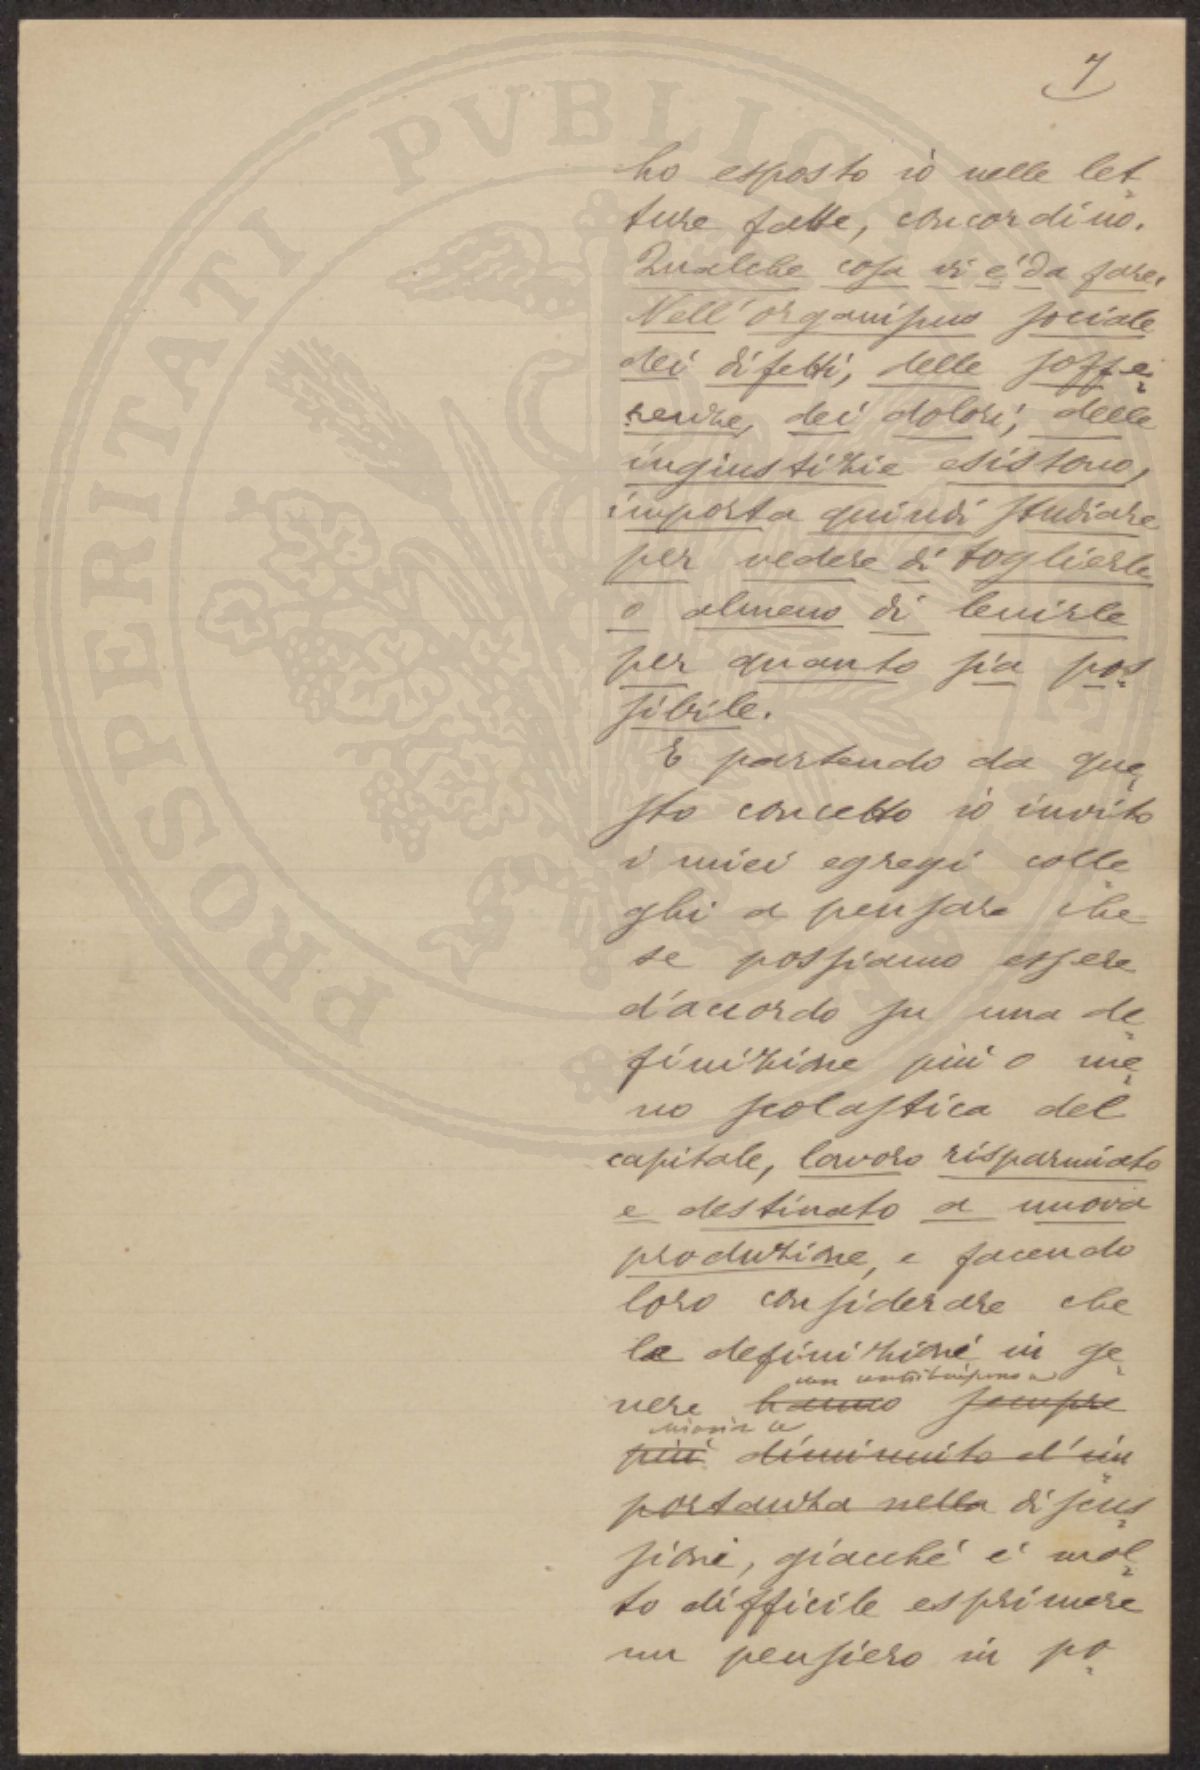 7
ho esposto io nelle let-
ture fatte, concordino.
Qualche cosa vi e' da fare.
Nell'organismo sociale
dei difetti, delle soffe-
renze, dei dolori, delle
ingiustizie esistono,
importa quindi studiare
per vedere di toglierle
o almeno di lenirle
per quanto sia pos-
sibile.
E partendo da que-
sto concetto io invito
i miei egregi colle-
ghi a pensare che
se possiamo essere
d'accordo su una de-
finizione più o me-
no scolastica del
capitale, lavoro risparmiato
e destinato a nuova
produzione, e facendo
loro considerare che
le definizioni in ge-
non contribuiscono a
nere hanno sempre
più diminuito d'im-
portanza nella discus-
sioni, giacché é mol-
to difficile esprimere
un pensiero in po-
PROSPERITATI PVBLICAE